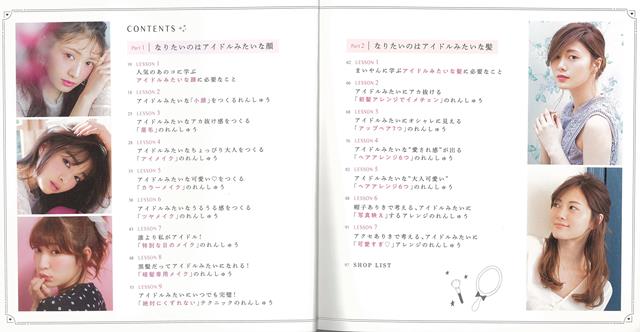 CONTENTS
Part1 なりたいのはアイドルみたいな顔
LESSON 1
人気のあのコに学ぶ
アイドルみたいな顔に必要なこと
LESSON 2
アイドルみたいな「小顔」をつくるれんしゅう
LESSON 3
アイドルみたいなアカ抜け感をつくる
「眉毛」のれんしゅう
LESSON 4
アイドルみたいなちょっぴり大人をつくる
「アイメイク」のれんしゅう
LESSON 5
アイドルみたいな可愛い♡をつくる
「カラーメイク」のれんしゅう
LESSON 6
アイドルみたいなうるうる感をつくる
「ツヤメイク」のれんしゅう
LESSON 7
誰より私がアイドル!
「特別な日のメイク」のれんしゅう
LESSON 8
黒髪だってアイドルみたいになれる!
「暗髪専用メイク」のれんしゅう
LESSON 9
アイドルみたいにいつでも完璧!
「絶対にくずれない」テクニックのれんしゅう
Part2 なりたいのはアイドルみたいな髪
LESSON 1
まいやんに学ぶアイドルみたいな髪に必要なこと
LESSON 2
アイドルみたいにアカ抜ける
「前髪アレンジでイメチェン」のれんしゅう
LESSON 3
アイドルみたいにオシャレに見える
「アップヘア7つ」のれんしゅう
LESSON 4
アイドルみたいな“愛され感”が出る
「ヘアアレンジ6つ」のれんしゅう
LESSON 5
アイドルみたいな“大人可愛い”
「ヘアアレンジ6つ」のれんしゅう
LESSON 6
帽子ありきで考える、アイドルみたいに
「写真映え」するアレンジのれんしゅう
LESSON 7
アクセありきで考える、アイドルみたいに
「可愛すぎ♡」アレンジのれんしゅう
97 SHOP LIST